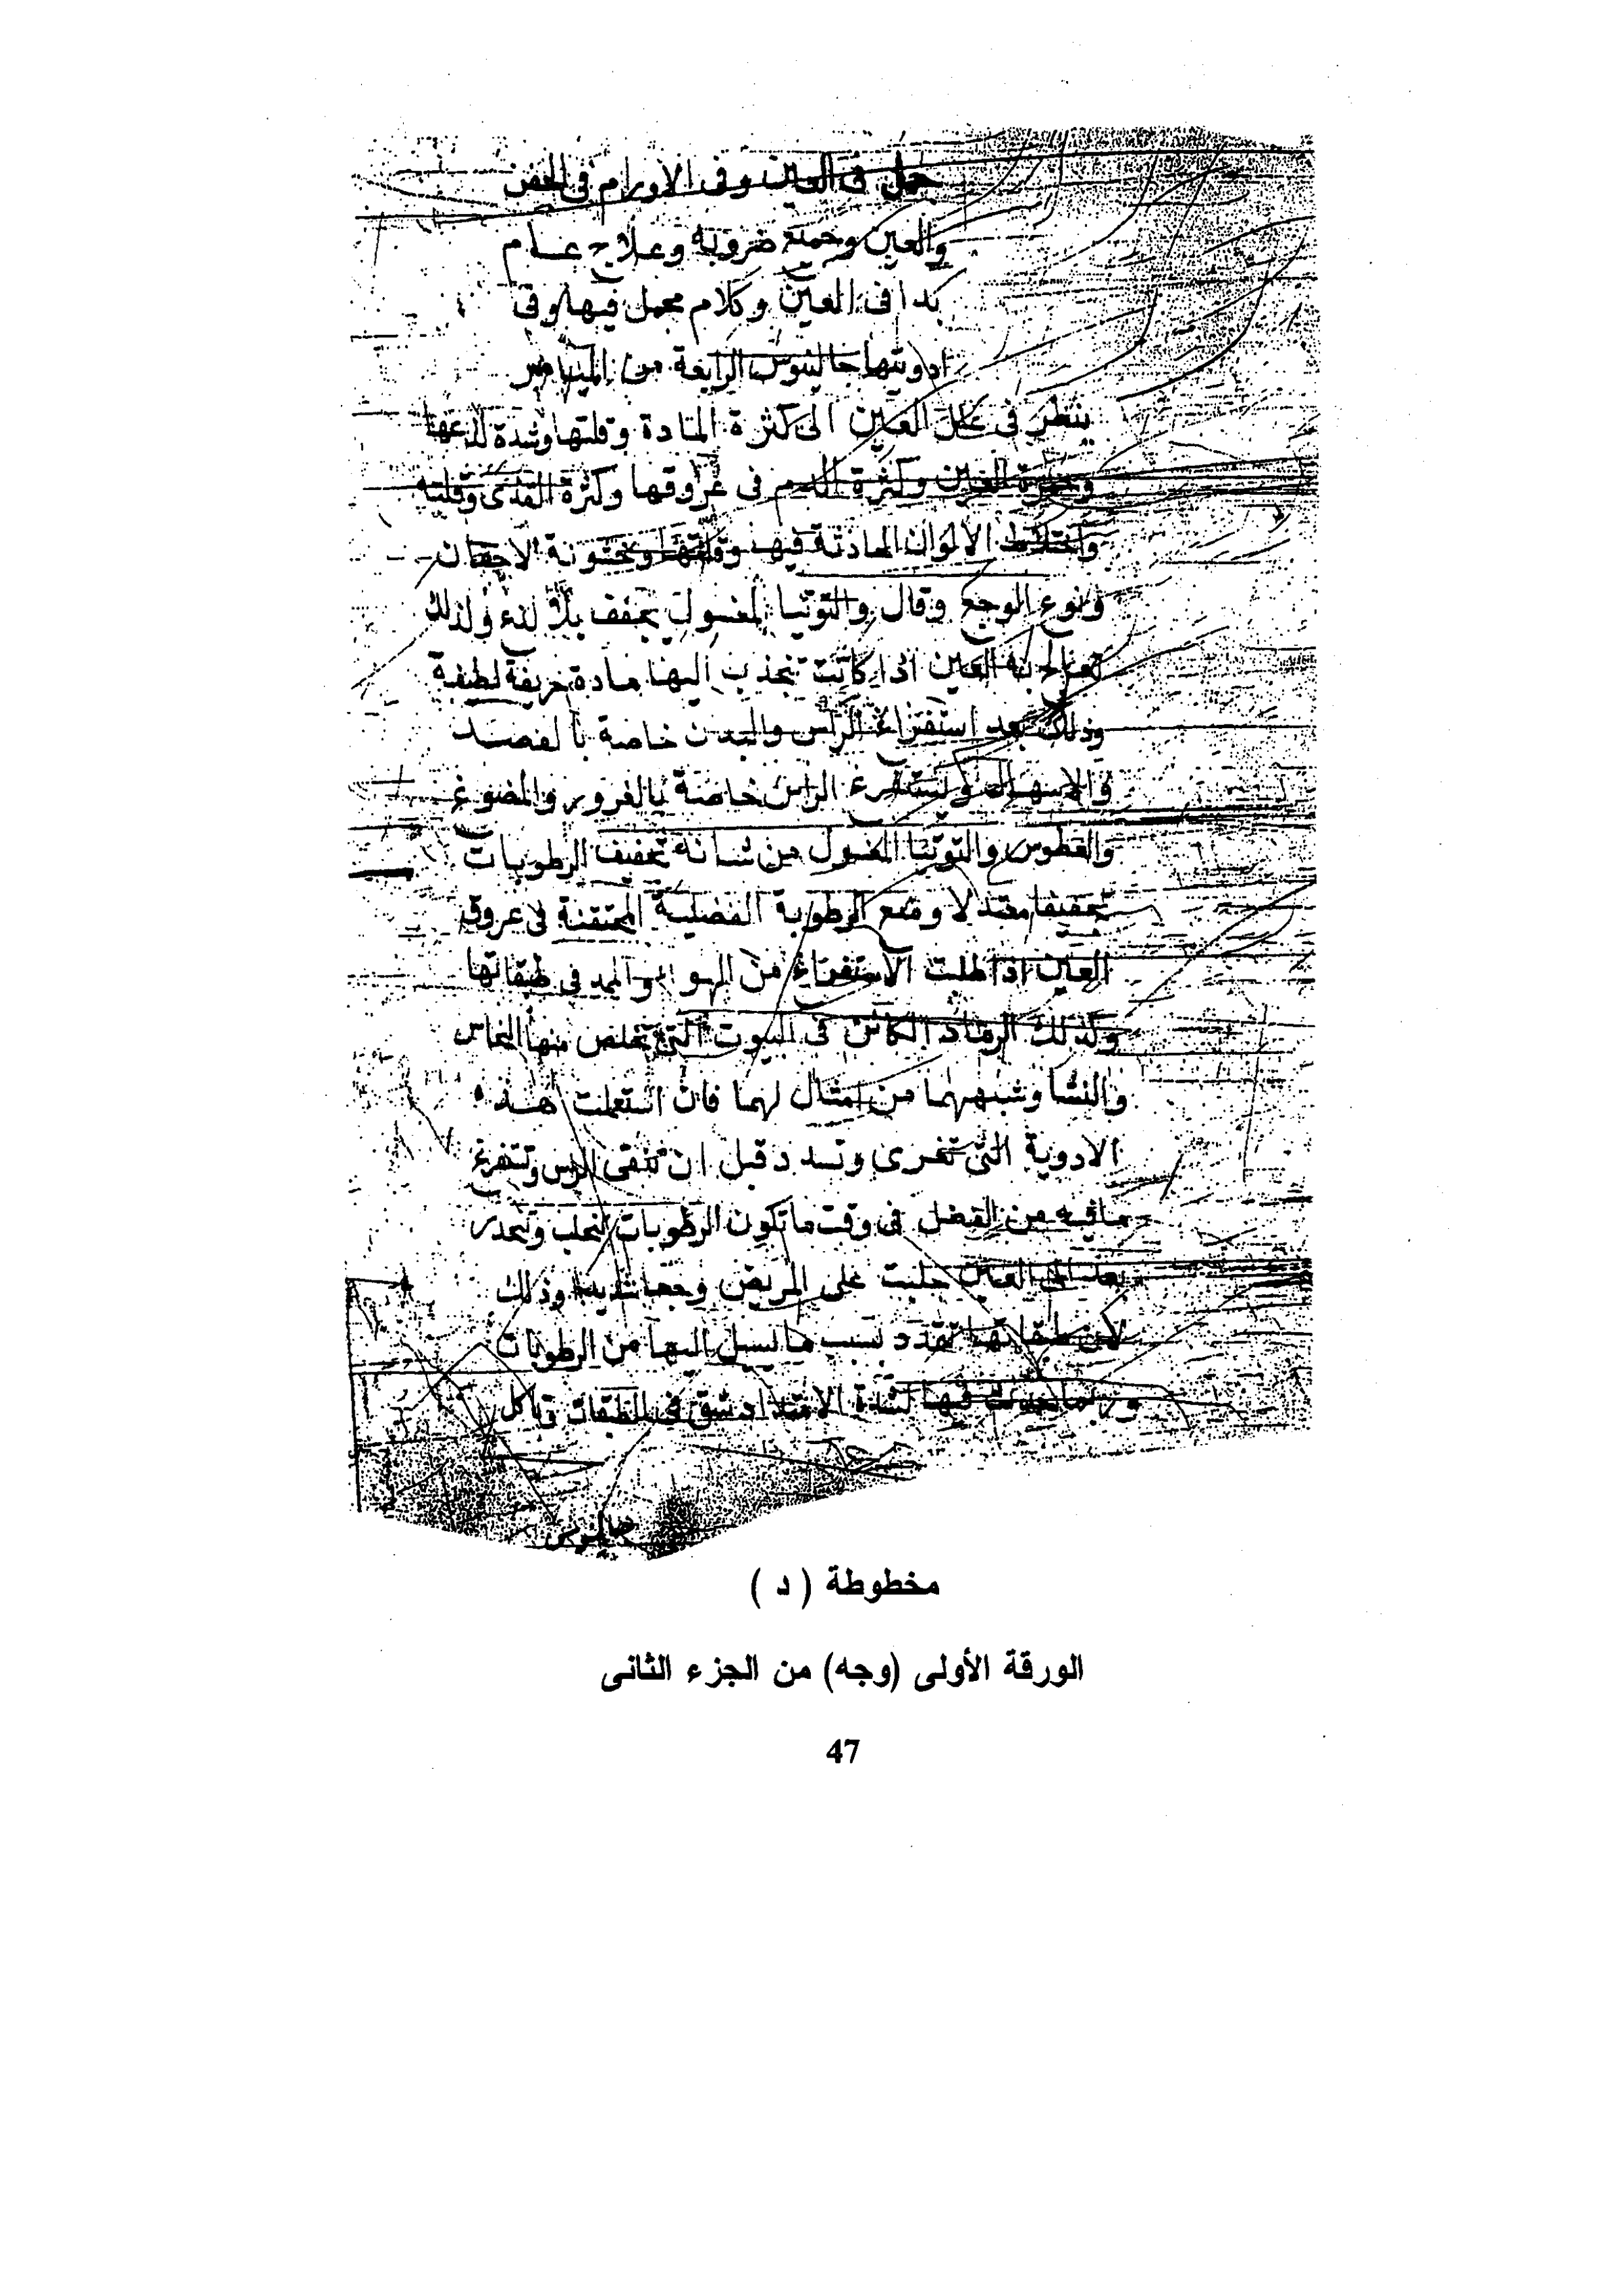 جمل فى العين وفى الاورام فى الحض
والعين وجميع ضروبه وعلاج عام
بدا فى العين وكلام مجمل فيها وفى
ادويتها جالينوس الرابعة من الميامر
ينظر فى علل العين الى كثرة المادة وقلتها وشدة لذعها
وحمرة العين وكثرة الدم فى عروقها وكثرة القذى وقلته
واختلاط الالوان الحادثة فيها وقلتها وخشونة الاجفان
ونوع الوجع وقال والتوتيا المغسول يجفف بلا لذع ولذلك
تعالج به العين اذا كانت تنجذب اليها مادة حريفة لطيفة
وذلك بعد استفراغ الراس والبدن خاصة بالفصد
والاسهال ويستفرغ الراس خاصة بالغرور والمضوغ
والعطوس والتوتيا المغسول من شانه تجفيف الرطوبات
تجفيفا معتدلا ومنع الرطوبة الفضلية المحتقنة فى عروق
العين اذا طلبت الاستفراغ من المرو فى طبقاتها
وكذلك الرماد الكائن فى البيوت التى تخلص منها النحاس
والنشا وشبههما من امثال لهما فان استعملت هذه
الادوية التى تغرى وتسدد قبل ان تنقى الراس وتستفرغ
ما فيه من الفضل فى وقت ما تكون الرطوبات تنجلب وتنحدر
بعد الى العين جلبت على المريض وجعا شديدا وذلك
لان طبقاتها تمدد بسبب ما يسيل اليها من الرطوبات
وربما حدث فيها لشدة الامتداد شق فى الطبقات وتاكل
جالينوس
مخطوطة ( د )
الورقة الأولى (وجه) من الجزء الثانى
47